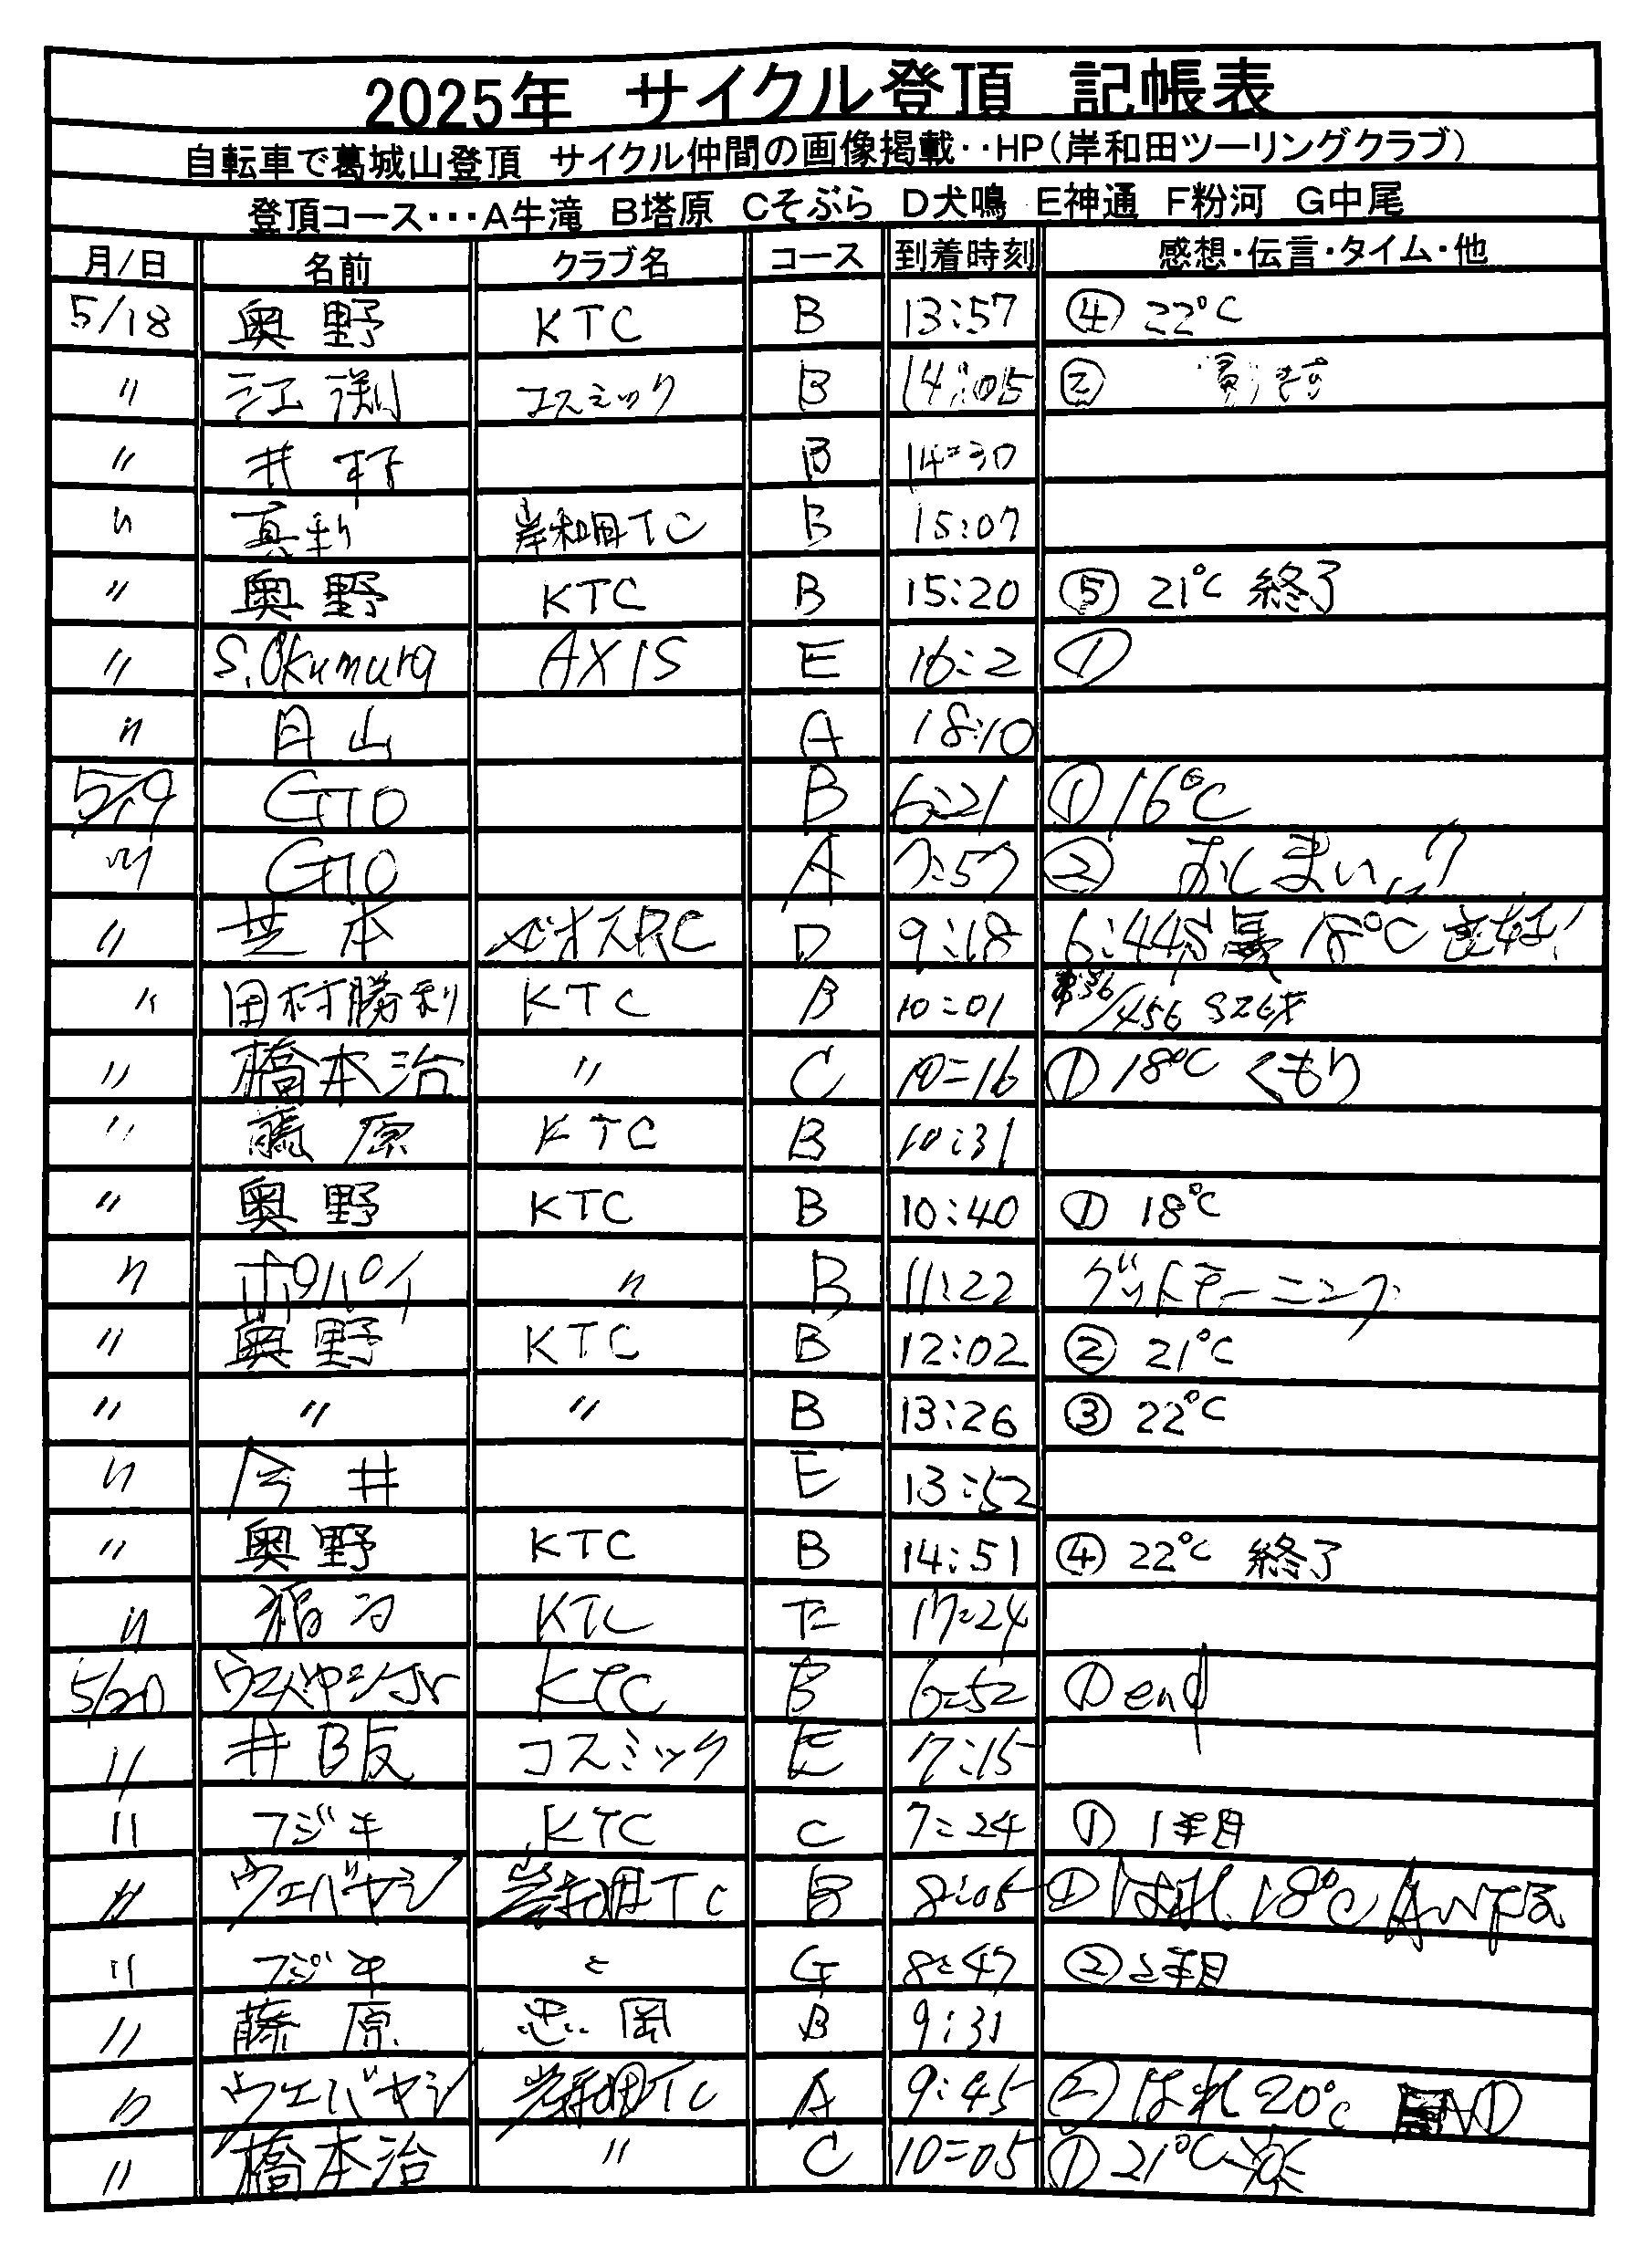 2025年 サイクル登頂 記帳表
自転車で葛城山登頂 サイクル仲間の画像掲載‥HP(岸和田ツーリングクラブ)
登頂コース･･･A牛滝 B塔原 Cそぶら D犬鳴 E神通 F粉河 G中尾
月/日 名前 クラブ名 コース 到着時刻 感想・伝言・タイム・他
5/18 奥野 KTC B 13:57 ④ 22℃
〃 江渕 コスミック B 14:05 ②
〃 井村 B 14:30
〃 真利 岸和田TC B 15:07
〃 奥野 KTC B 15:20 ⑤ 21℃ 終了
〃 S.Okumura AXIS E 16:2 ①
〃 月山 A 18:10
5/19 GTO B 6:21 ① 16℃
〃 GTO A 7:57 ② おしまい
〃 芝本 RC D 9:18 6:44 18℃
〃 田村勝利 KTC B 10:01 /456
〃 橋本治 〃 C 10:16 ① 18℃ くもり
〃 藤原 KTC B 10:31
〃 奥野 KTC B 10:40 ① 18℃
〃 ポパイ 〃 B 11:22 グットモーニング
〃 奥野 KTC B 12:02 ② 21℃
〃 〃 〃 B 13:26 ③ 22℃
〃 今井 E 13:52
〃 奥野 KTC B 14:51 ④ 22℃ 終了
〃 KTC E 17:24
5/20 Jr KTC B 6:52 ① end
〃 井阪 コスミック E 7:15
〃 フジキ KTC C 7:24 ① 1本目
〃 ウエバヤシ 岸和田TC B 8:05 ① はれ 18℃
〃 フジキ 〃 G 8:47 ② 2本目
〃 藤原 忠岡 B 9:31
〃 ウエバヤシ 岸和田TC A 9:45 ② はれ 20℃ END
〃 橋本治 〃 C 10:05 ① 21℃